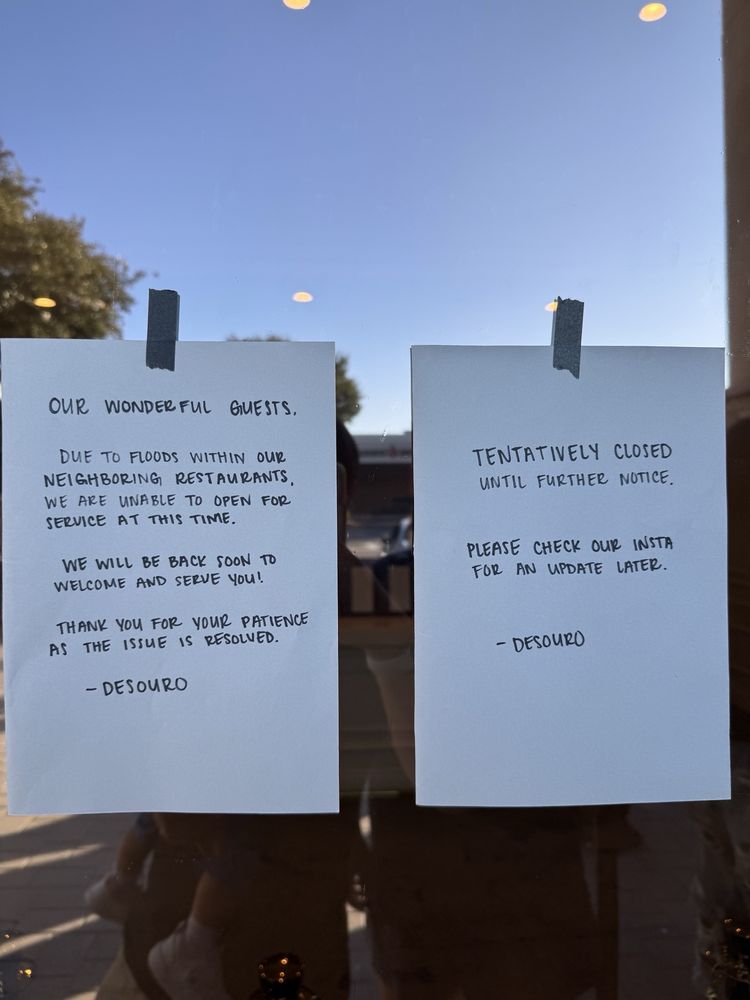 OUR WONDERFUL GUESTS,
DUE TO FLOODS WITHIN OUR
NEIGHBORING RESTAURANTS,
WE ARE UNABLE TO OPEN FOR
SERVICE AT THIS TIME.
WE WILL BE BACK SOON TO
WELCOME AND SERVE YOU!
THANK YOU FOR YOUR PATIENCE
AS THE ISSUE IS RESOLVED.
- DESOURO
TENTATIVELY CLOSED
UNTIL FURTHER NOTICE.
PLEASE CHECK OUR INSTA
FOR AN UPDATE LATER.
- DESOURO